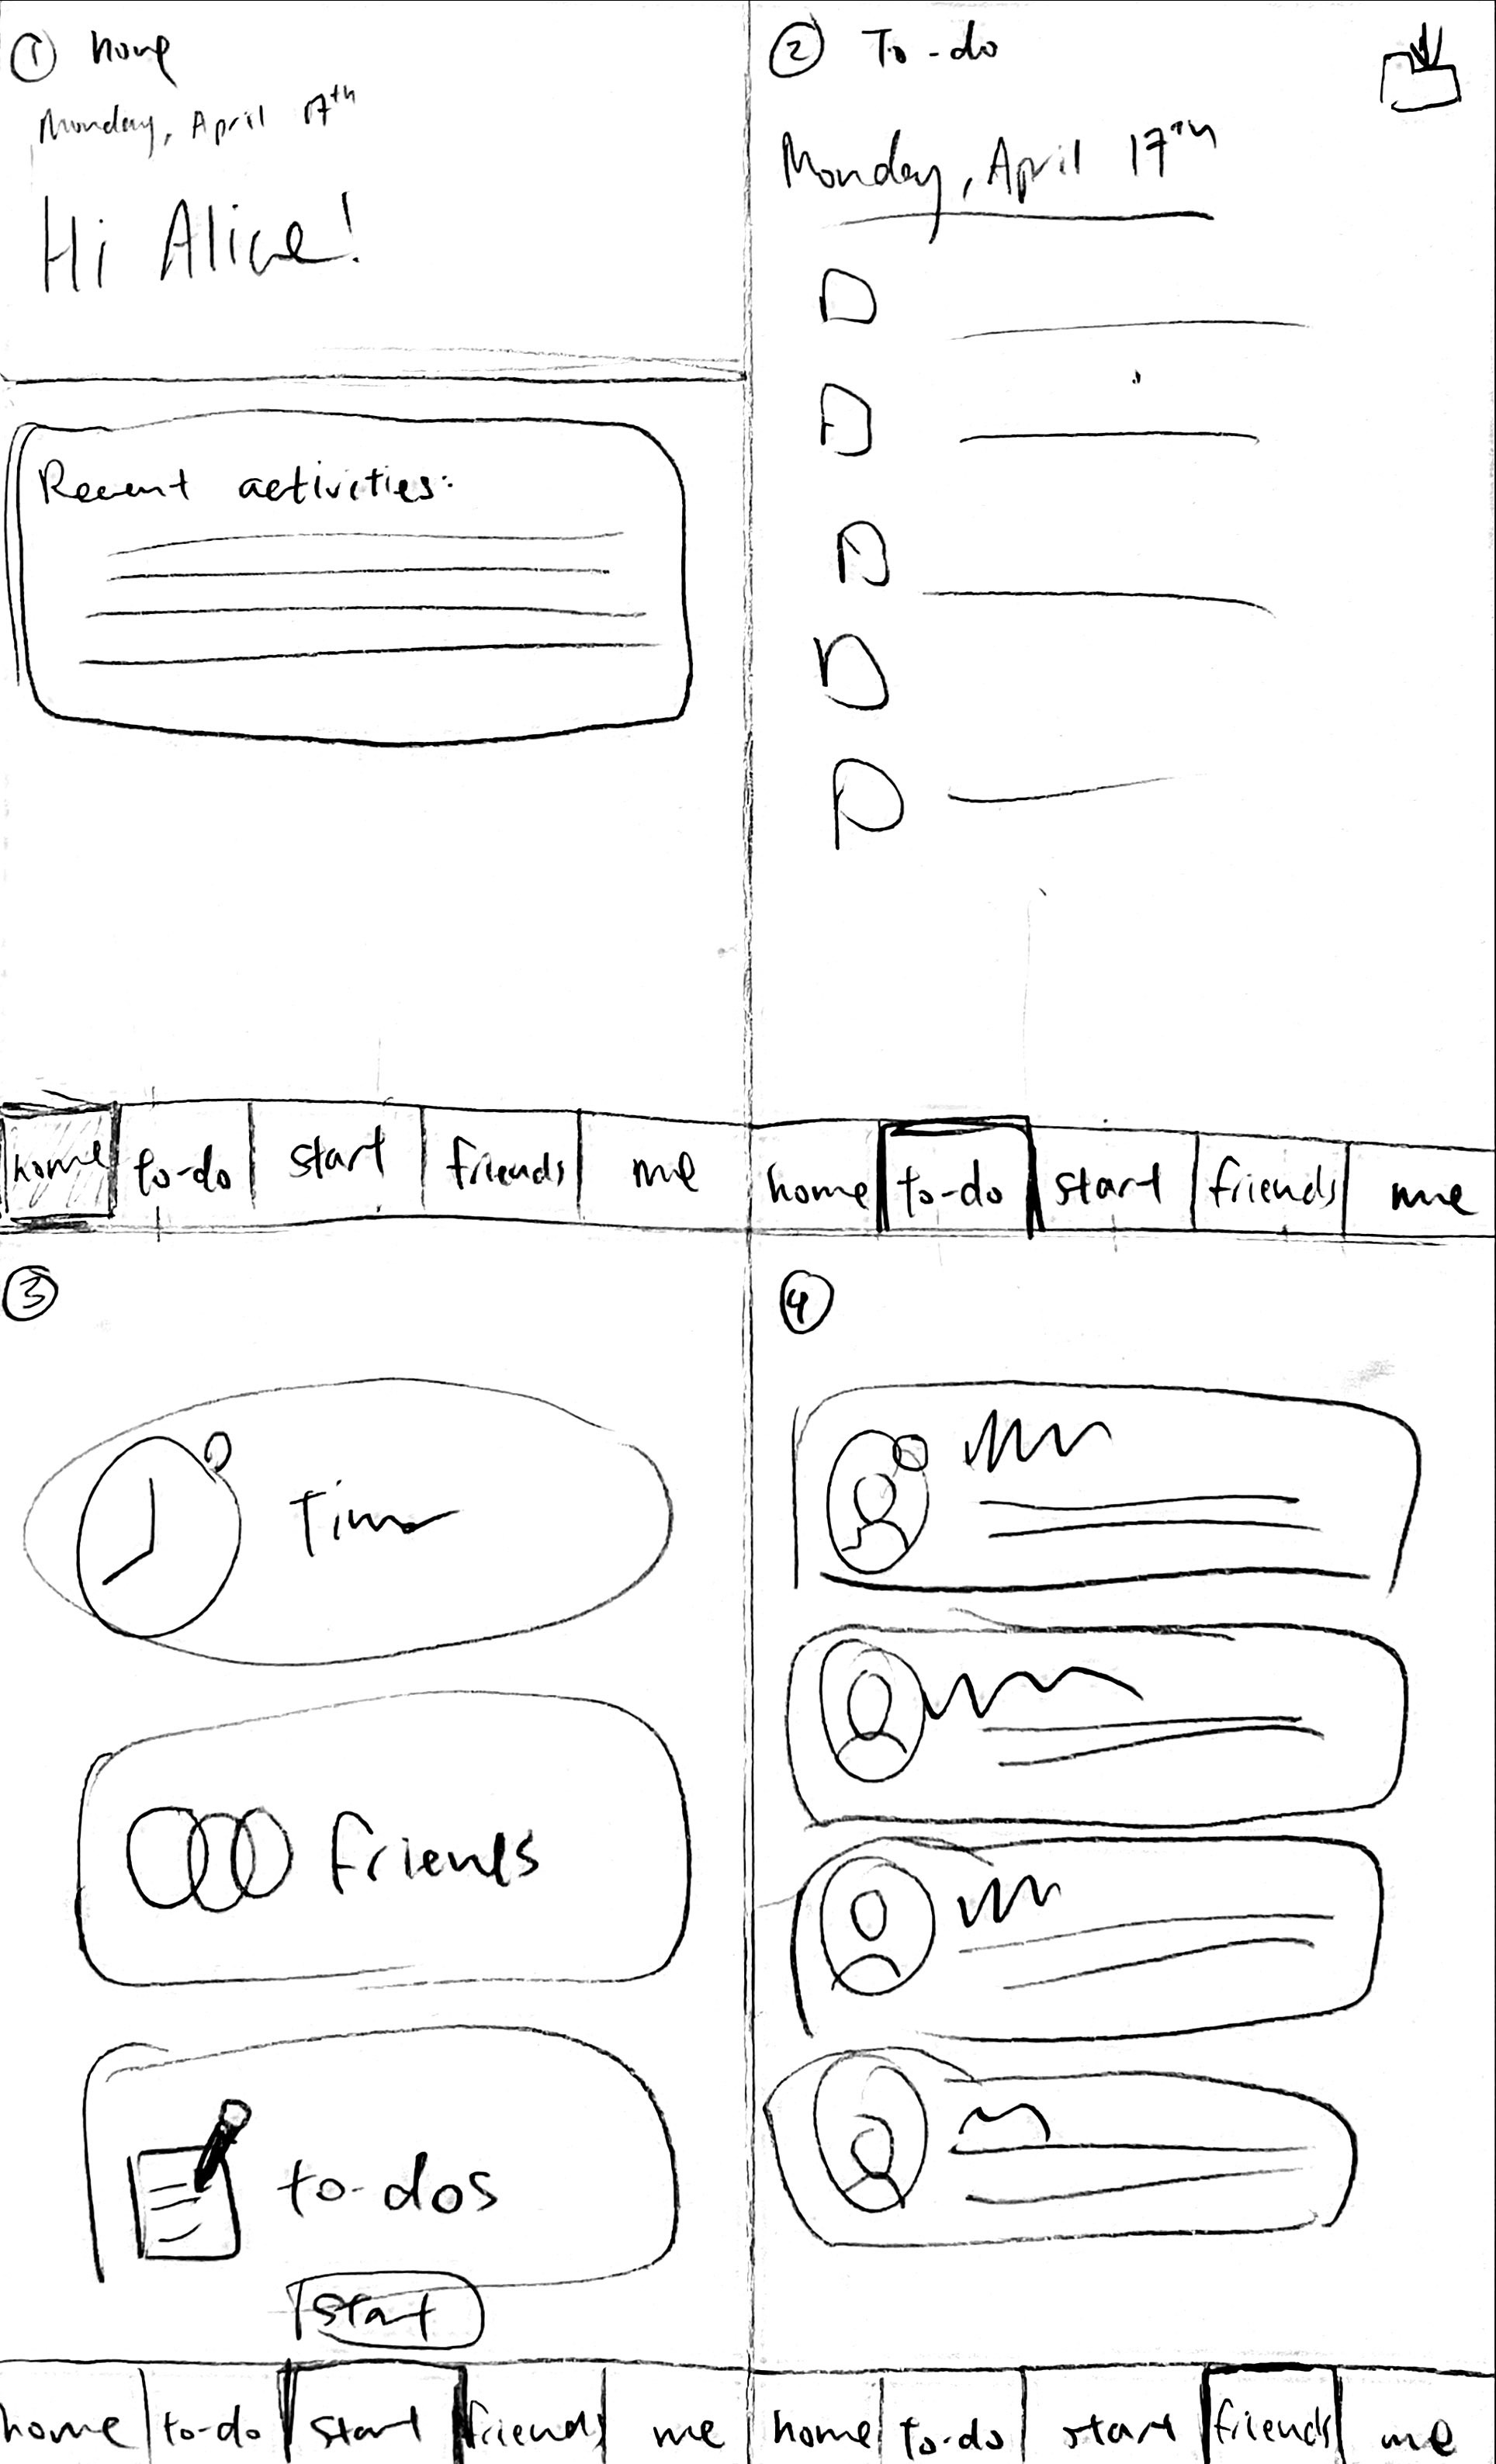 ① home
Monday, April 17th
Hi Alice!
Recent activities:
home to-do start friends me
② To-do
Monday, April 17th
home to-do start friends me
③
Time
friends
to-dos
start
home to-do start friends me
④
home to-do start friends me